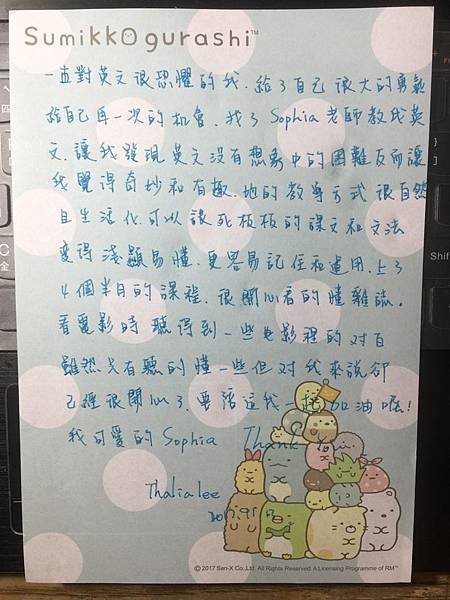 Sumikko gurashi™
一直對英文很恐懼的我，給了自己很大的勇氣
給自己再一次的机會，找了Sophia老師教我英
文，讓我發現英文沒有想象中的困難反而讓
我覺得奇妙和有趣，她的教學方式很自然
且生活化，可以讓死板板的課文和文法
變得淺顯易懂，更容易記住和運用，上了
4個半月的課程，很開心看的懂雜誌。
看電影時聽得到一些电影裡的对白
雖然只有聽的懂一些但对我來說卻
已經很開心了，要陪這我一起加油喔!
我可愛的Sophia Thank
Thalia lee
©2017 San-X Co., Ltd. All Rights Reserved. A Licensing Programme of RM™
四
全
Shif